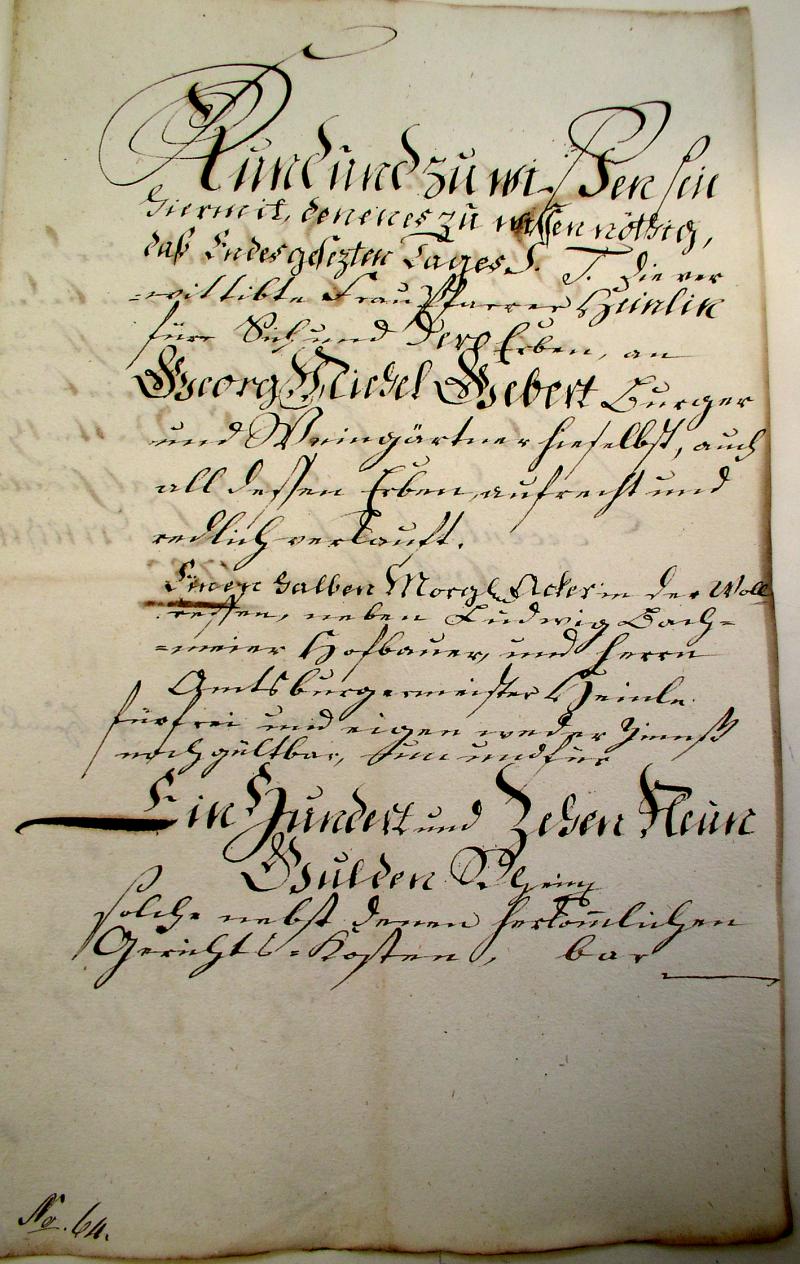 Kund und zu wissen sein
hiermit, denen es zu wissen nöthig,
daß Endesgesezten Tages S. T. die ver
=wittibte Frau Pfarrer Hünlin
für Sich und Dero Erben, an
Georg Michel Gebert Burger
und Weingärtner hieselbst, auch
all dessen Erben, aufrecht und
redlich verkauft.
Einen halben Morgen Aker in der Woll
ressen, neben Ludwig Bach=
=meier Hofbauer, und Herrn
Amtsburgermeister Heinle
für frei und eigen weder Zinnß
noch gültbar, Um und für
Ein Hundert und Zehen Neun
Gulden Rheinl
solche nebst denen herkom̄lichen
Gerichts=Kosten, bar
No. 64.